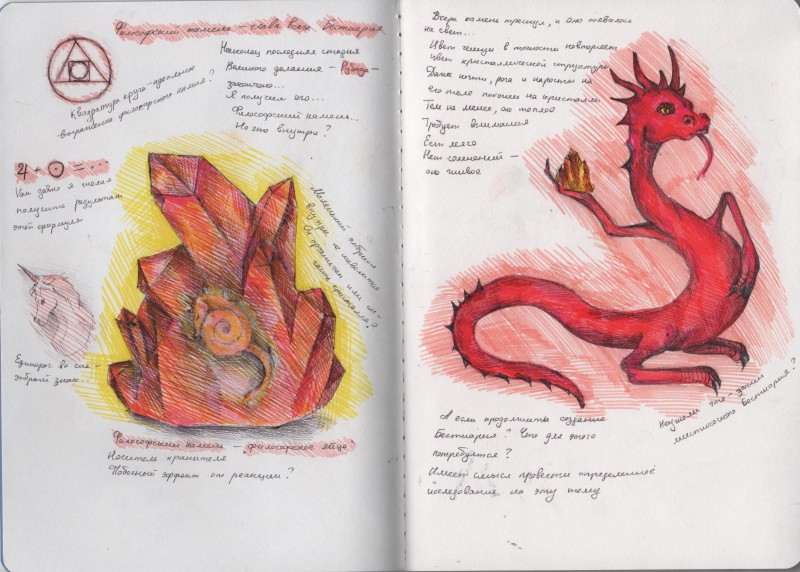 Философский камень – глава всего Бестиария
Квадратура круга – идеально
выражение философского камня?
Наконец последняя стадия
Великого делания – Рубедо –
закончено...
Я получил его...
Философский камень...
Но что внутри?
♃ + ☉ = ...
Как давно я желал
получить результат
этой формулы
Маленький
внутри не шевелится
Он органичен или
кристалла?
Единорог во сне –
добрый знак...
Философский камень – философское яйцо?
Носитель хранителя
Побочный эффект от реакции?
Вчера камень треснул, и оно появилось
на свет...
Цвет чешуи в точности повторяет
цвет кристаллической структуры
Даже когти, рога и наросты на
его теле похожи на кристаллы
Тем не менее, оно теплое
Требует внимания
Ест мясо
Нет сомнений –
оно живое
А если продолжить создание
Бестиария? Что для этого
потребуется?
Имеет смысл провести определенное
исследование на эту тему
Неужели это – зачин
мистического Бестиария?